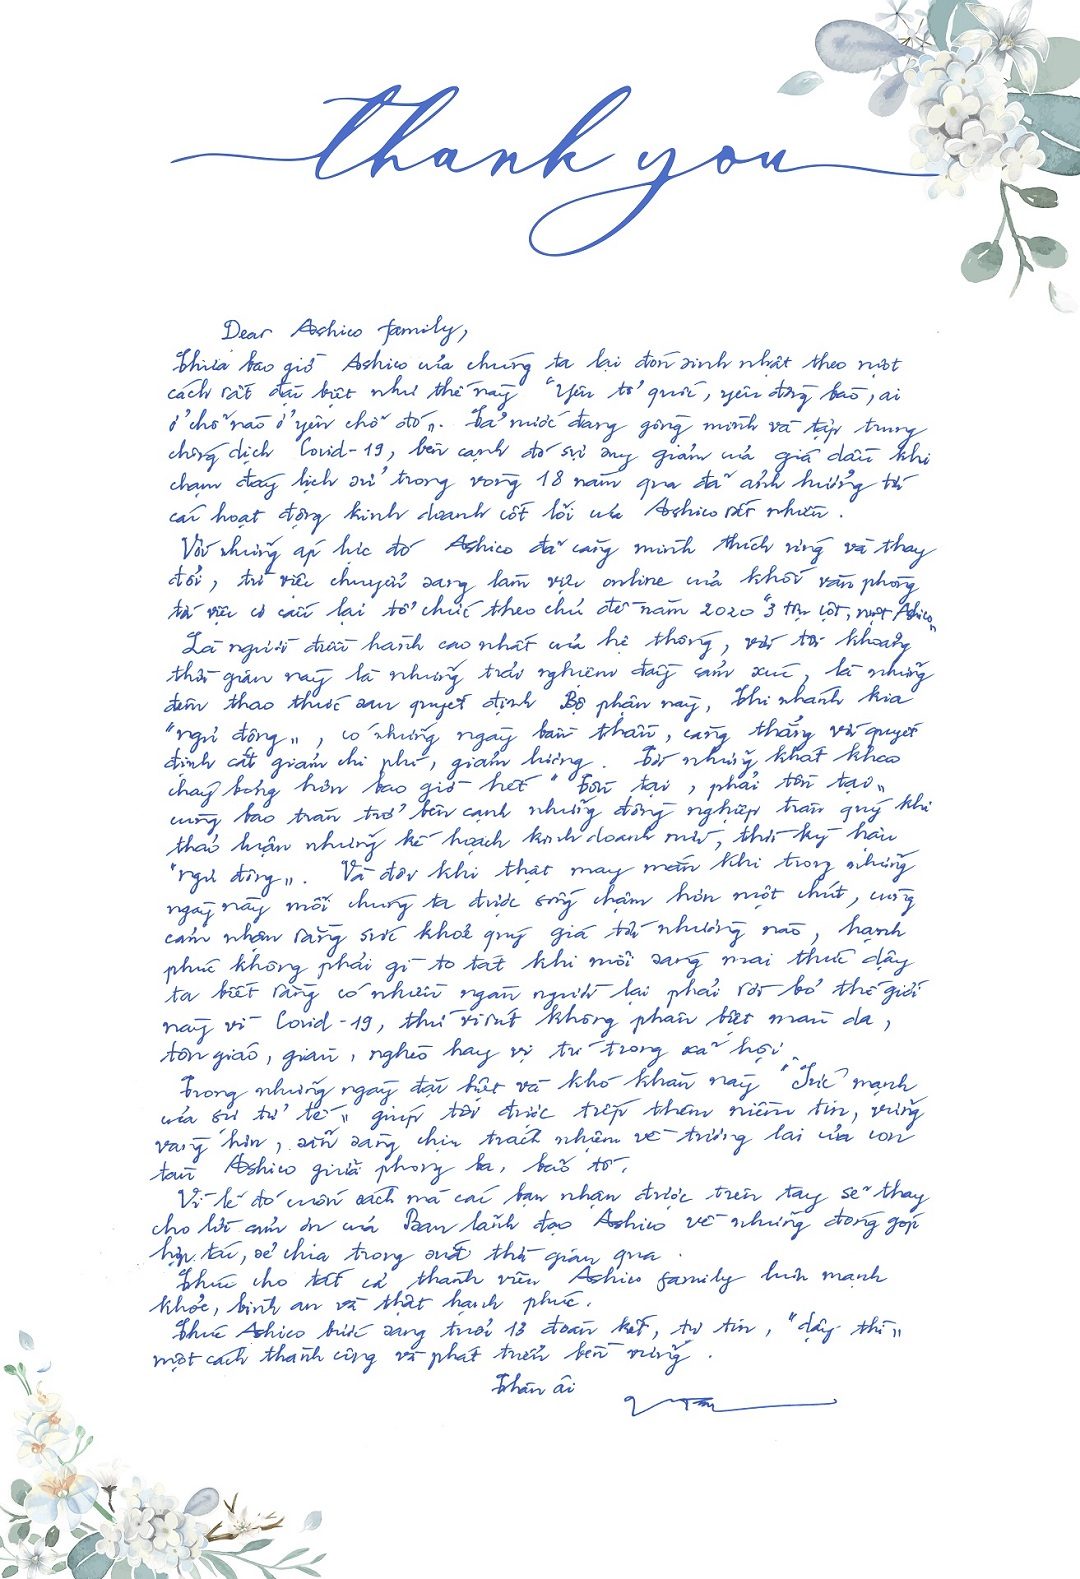 thank you
Dear Ashico family,
Chưa bao giờ Ashico của chúng ta lại đón sinh nhật theo một
cách rất đặc biệt như thế này "Yêu tổ quốc, yêu đồng bào, ai
ở chỗ nào ở yên chỗ đó". Cả nước đang gồng mình và tập trung
chống dịch Covid-19, bên cạnh đó sự suy giảm của giá dầu khi
chạm đáy lịch sử trong vòng 18 năm qua đã ảnh hưởng tới
các hoạt động kinh doanh cốt lõi của Ashico rất nhiều.
Với những áp lực đó Ashico đã căng mình thích ứng và thay
đổi, từ việc chuyển sang làm việc online của khối văn phòng
tới việc cơ cấu lại tổ chức theo chủ đề năm 2020 "3 trụ cột, một Ashico"
Là người điều hành cao nhất của hệ thống, với tôi khoảng
thời gian này là những trải nghiệm đầy cảm xúc, là những
đêm thao thức sau quyết định Bộ phận này, Chi nhánh kia
"ngủ đông", có những ngày bần thần, căng thẳng với quyết
định cắt giảm chi phí, giảm lương. Đến những khát khao
cháy bỏng hơn bao giờ hết "Tồn tại, phải tồn tại"
cùng bao trăn trở bên cạnh những đồng nghiệp trân quý khi
thảo luận những kế hoạch kinh doanh mới, thời kỳ hậu
"ngủ đông". Và đôi khi thật may mắn khi trong những
ngày này mỗi chúng ta được sống chậm hơn một chút, cùng
cảm nhận rằng sức khoẻ quý giá tới nhường nào, hạnh
phúc không phải gì to tát khi mỗi sáng mai thức dậy
ta biết rằng có nhiều ngàn người lại phải rời bỏ thế giới
này vì Covid-19, thứ virút không phân biệt màu da,
tôn giáo, giàu, nghèo hay vị trí trong xã hội.
Trong những ngày đặc biệt và khó khăn này "Sức mạnh
của sự tử tế" giúp tôi được tiếp thêm niềm tin, vững
vàng hơn, sẵn sàng chịu trách nhiệm về tương lai của con
tàu Ashico giữa phong ba, bão tố.
Vì lẽ đó cuốn sách mà các bạn nhận được trên tay sẽ thay
cho lời cảm ơn của Ban lãnh đạo Ashico về những đóng góp
hợp tác, sẻ chia trong suốt thời gian qua.
Chúc cho tất cả thành viên Ashico family luôn mạnh
khỏe, bình an và thật hạnh phúc.
Chúc Ashico bước sang tuổi 13 đoàn kết, tự tin, "dậy thì"
một cách thành công và phát triển bền vững.
Thân ái